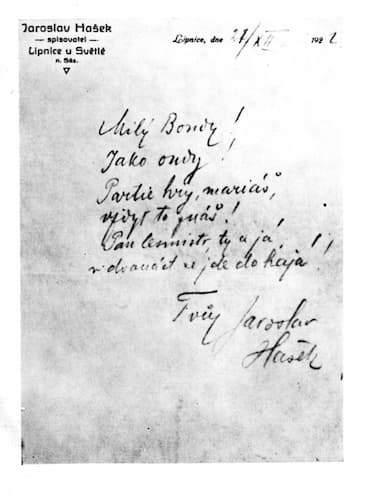 Jaroslav Hašek
— spisovatel —
Lipnice u Světlé
n. Sáz.
Lipnice, dne 21/XII 1922
Milý Bondy!
Jako ondy!
Partie hry, mariáš,
vždyť to znáš!
Pan ty a já!
v dvanáct se jde do hája!
Tvůj Jaroslav
Hašek